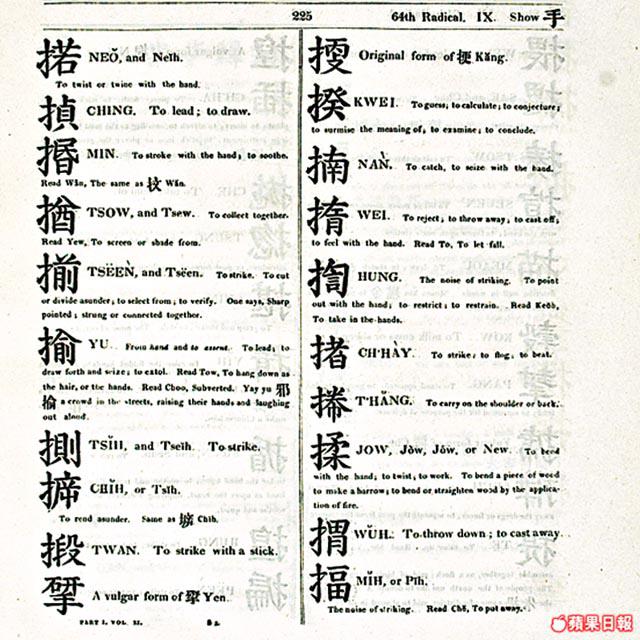 225 64th Radical. IX. Show 手
掿 NEŎ, and Neĭh.
To twist or twine with the hand.
揁 CHING. To lead; to draw.
揗 MIN. To stroke with the hand; to soothe.
Read Wăn, The same as 抆 Wăn.
揂 TSOW, and Tsew. To collect together.
Read Yew, To screen or shade from.
揃 TSËEǸ, and Tsëen. To strike. To cut
or divide asunder; to select from; to verify. One says, Sharp
pointed; strung or connected together.
揄 YU. From hand and to assent. To lead; to
draw forth and seize; to extol. Read Tow, To hang down as
the hair, or the hands. Read Choo, Subverted. Yay yu 邪
揄 a crowd in the streets, raising their hands and laughing
out aloud.
揤 TSĬH, and Tseĭh. To strike.
揥 CHĬH, or Tsĭh.
To rend asunder. Same as Chĭh.
摋 TWAN. To strike with a stick.
A vulgar form of Yen.
PART I. VOL. II. S 2.
Original form of 挭 Kăng.
揆 KWEI. To guess; to calculate; to conjecture;
to surmise the meaning of; to examine; to conclude.
揇 NAǸ. To catch, to seize with the hand.
WEI. To reject; to throw away; to cast off;
to feel with the hand. Read To, To let fall.
揈 HUNG. The noise of striking. To point
out with the hand; to restrict; to restrain. Read Keŏh,
To take in the hands.
揩 CH'HÀY. To strike; to flog; to beat.
T'HĂNG. To carry on the shoulder or back.
揉 JOW, Jòw, Jów, or New. To bend
with the hand; to twist; to work. To bend a piece of wood
to make a harrow; to bend or straighten wood by the applica-
tion of fire.
揟 WŬH. To throw down; to cast away.
揊 MĬH, or Pĭh.
The noise of striking. Read Chŏ, To put away.
蘋果日報